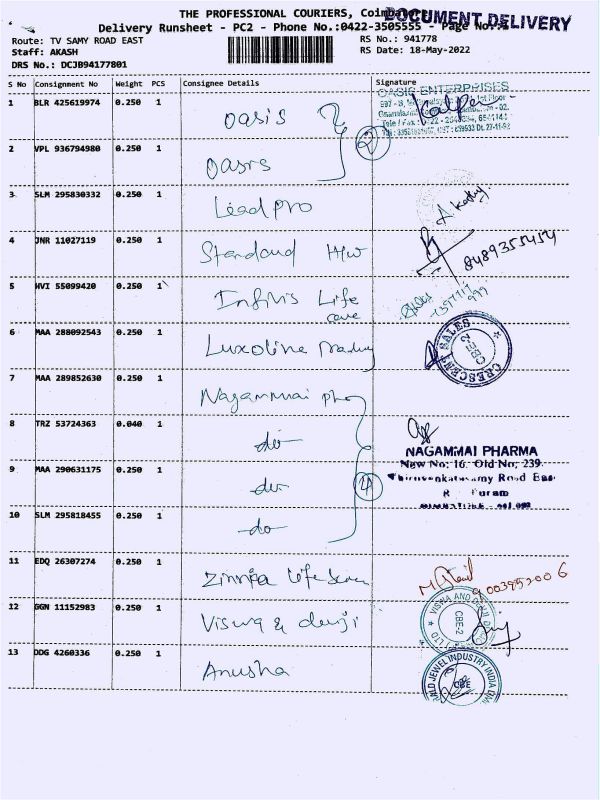 THE PROFESSIONAL COURIERS,
DOCUMENT DELIVERY
Delivery Runsheet - PC2 - Phone No.:0422-3505555
Route: TV SAMY ROAD EAST
RS No.: 941778
Staff: AKASH
RS Date: 18-May-2022
DRS No.: DCJB94177801
S No Consignment No Weight PCS Consignee Details Signature
OASIS ENTERPRISES
1 BLR 425619974 0.250 1 Oasis
2 VPL 936794980 0.250 1 Oasis
2
3 SLM 295830332 0.250 1 Lead pro
4 JNR 11027119 0.250 1 Standard H/w
8489355454
5 HVI 55099420 0.250 1 Life care
6 MAA 288092543 0.250 1 Luxoline
CRESCENT SALES
CBE-2
7 MAA 289852630 0.250 1 Nagammai
8 TRZ 53724363 0.040 1 do
NAGAMMAI PHARMA
New No: 16. Old No; 239.
9 MAA 290631175 0.250 1 do
4
10 SLM 295818455 0.250 1 do
11 EDQ 26307274 0.250 1
12 GGN 11152983 0.250 1 Viswa & devji
VISWA AND DEVJI
CBE-2
13 DDG 4260336 0.250 1 Anusha
JEWEL INDUSTRY INDIA
CBE